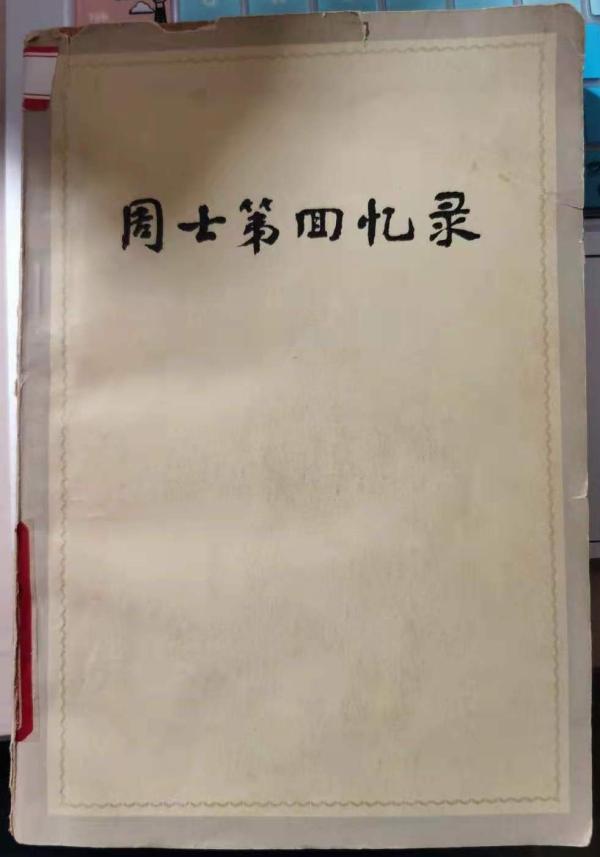 周士第回忆录